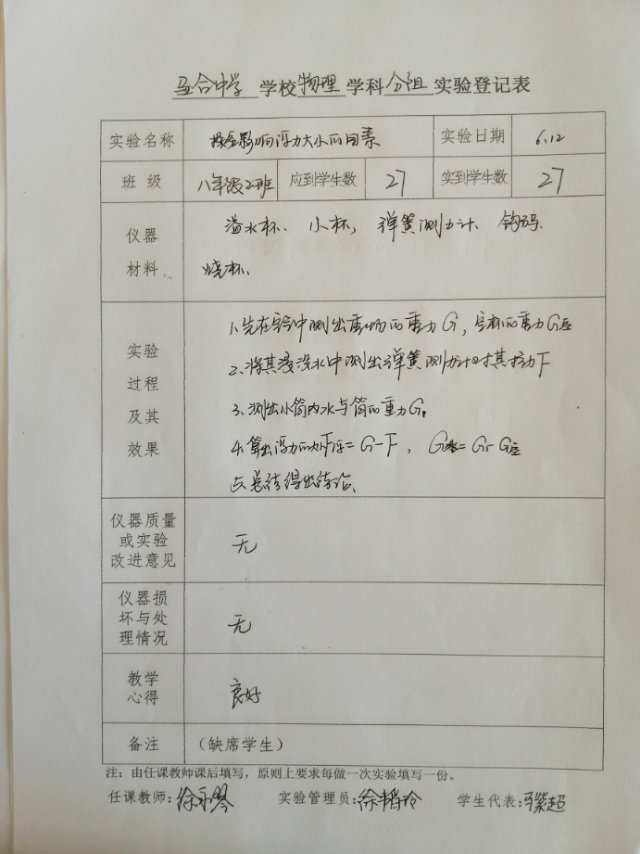 马合中学 学校 物理 学科 分组 实验登记表
实验名称 探究影响浮力大小的因素 实验日期 6.12
班 级 八年级2班 应到学生数 27 实到学生数 27
仪器材料 溢水杯、小杯,弹簧测力计、钩码、
烧杯、
实验过程及其效果
1、先在空气中测出重物的重力G,空杯的重力G空
2、将其浸没水中测出弹簧测力计对其拉力F
3、测出小筒内水与筒的重力G₁
4、算出浮力的大小F浮=G-F, G水=G₁-G空
5、总结得出结论。
仪器质量或实验改进意见 无
仪器损坏与处理情况 无
教学心得 良好
备注 (缺席学生)
注:由任课教师课后填写,原则上要求每做一次实验填写一份。
任课教师:徐永琴 实验管理员:徐 玲 学生代表: 超